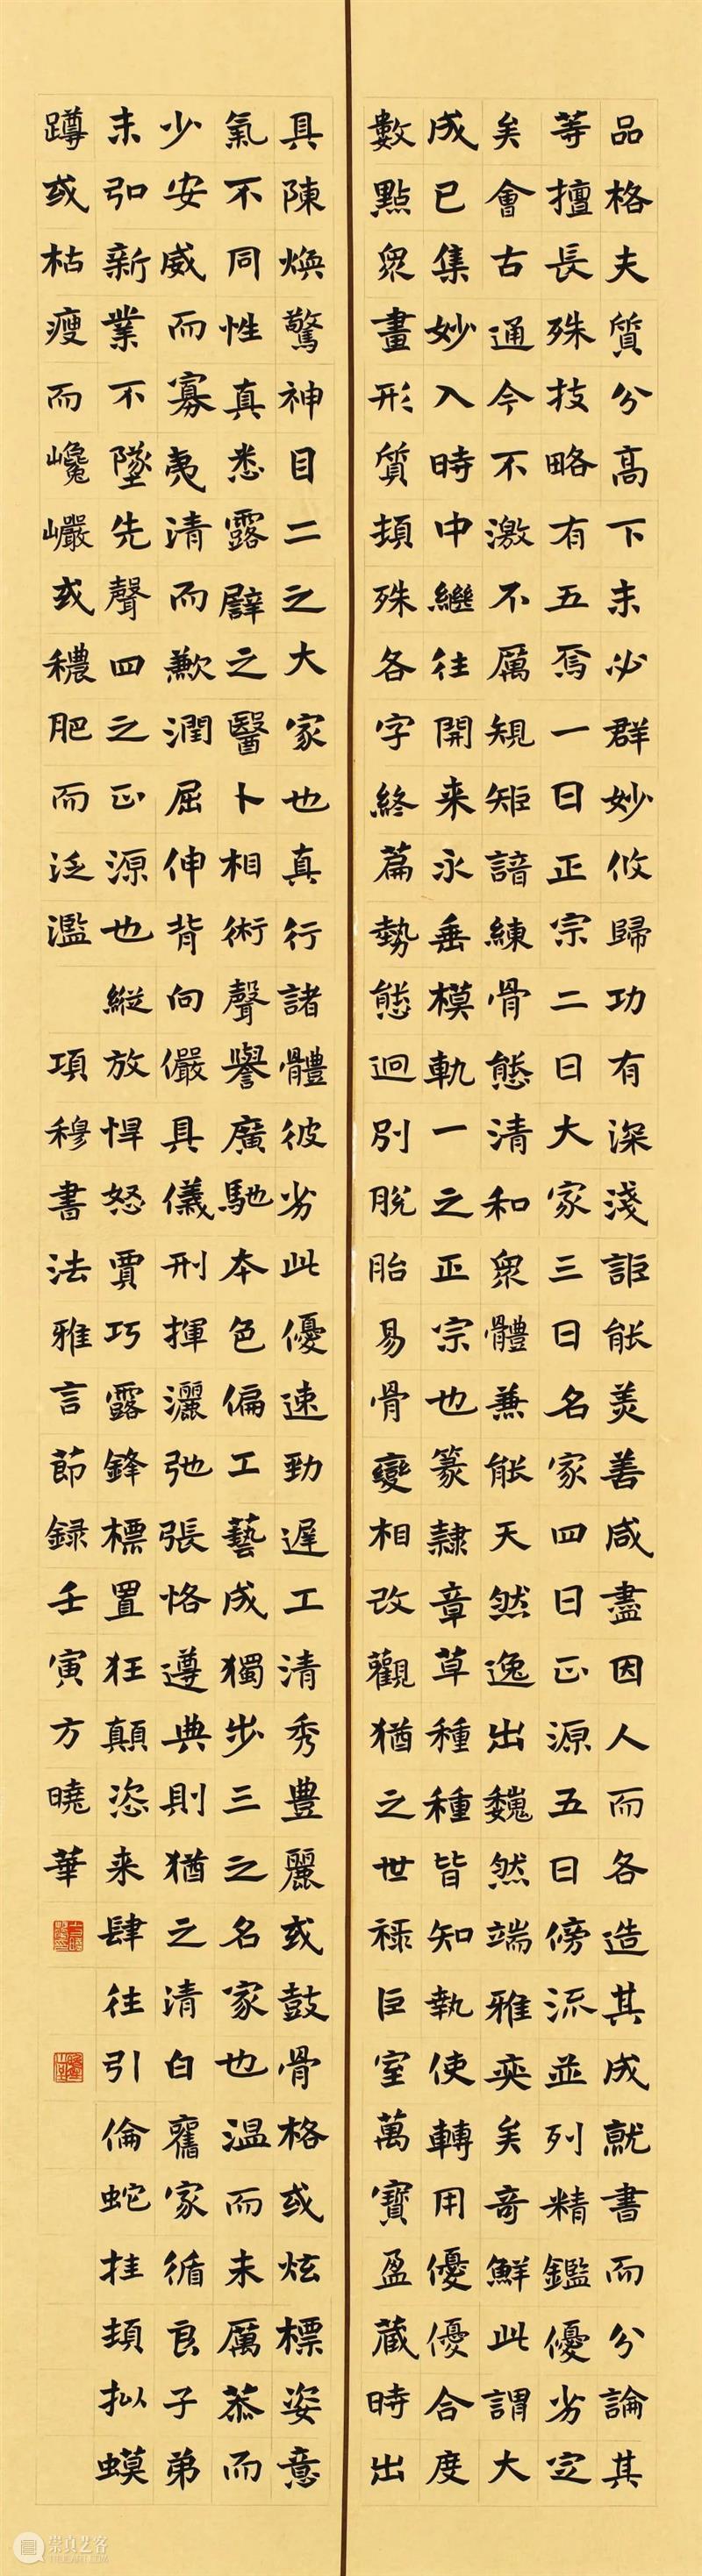 品格夫質分高下未必群妙攸歸功有深淺詎能美善咸盡因人而各造其成就書而分論其
等擅長殊技略有五焉一曰正宗二曰大家三曰名家四曰正源五曰傍流並列精鑑優劣定
矣會古通今不激不厲規矩諳練骨態清和眾體兼能天然逸出巍然端雅奕矣奇鮮此謂大
成已集妙入時中繼往開来永垂模軌一之正宗也篆隷章草種種皆知執使轉用優優合度
數點眾畫形質頓殊各字終篇勢態迥別脫胎易骨變相改觀猶之世祿巨室萬寶盈藏時出
具陳煥驚神目二之大家也真行諸體彼劣此優速勁遲工清秀豊麗或鼓骨格或炫標姿意
氣不同性真悉露譬之醫卜相術聲譽廣馳本色偏工藝成獨步三之名家也温而未厲恭而
少安威而寡夷清而歉潤屈伸背向儼具儀刑揮灑弛張恪遵典則猶之清白舊家循良子弟
未弘新業不墜先聲四之正源也縱放悍怒賈巧露鋒標置狂顛恣来肆往引倫蛇挂頓拟蟆
蹲或枯瘦而巉巖或穠肥而泛濫 項穆書法雅言節録壬寅方曉華
崇真艺客
TRUEART.COM